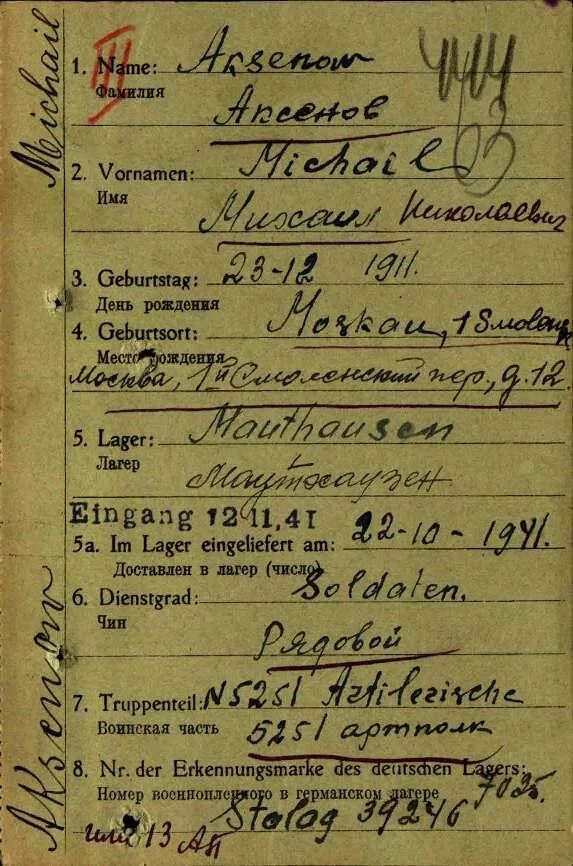 Michail
III
1. Name: Aksenow
Фамилия
Аксенов
2. Vornamen: Michail
Имя
Михаил Николаевич
3. Geburtstag: 23-12 1911.
День рождения
4. Geburtsort: Moskau, 1 Smolensk
Место рождения
Москва, 1й Смоленский пер., д. 12
5. Lager: Mauthausen
Лагер
Маутхаузен
Eingang 12 11. 41
5a. Im Lager eingeliefert am: 22-10-1941.
Доставлен в лагер (число)
6. Dienstgrad: Soldaten.
Чин
Рядовой
Aksenow
7. Truppenteil: N5251 Artilerische
Воинская часть
5251 артполк
8. Nr. der Erkennungsmarke des deutschen Lagers:
Номер военнопленного в германском лагере 7025.
Stalag 39246
или 13 АП